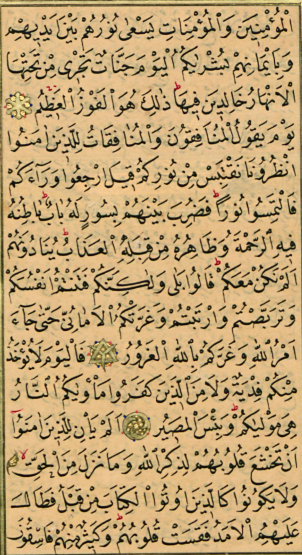 الْمُؤْمِنِينَ وَالْمُؤْمِنَاتِ يَسْعٰى نُورُهُمْ بَيْنَ اَيْدِيهِمْ
وَبِاَيْمَانِهِمْ بُشْرٰيكُمُ الْيَوْمَ جَنَّاتٌ تَجْرِى مِنْ تَحْتِهَا
الْاَنْهَارُ خَالِدِينَ فِيهَا ذٰلِكَ هُوَ الْفَوْزُ الْعَظِيمُ
يَوْمَ يَقُولُ الْمُنَافِقُونَ وَالْمُنَافِقَاتُ لِلَّذِينَ اٰمَنُوا
انْظُرُونَا نَقْتَبِسْ مِنْ نُورِكُمْ قِيلَ ارْجِعُوا وَرَٓاءَكُمْ
فَالْتَمِسُوا نُورًا فَضُرِبَ بَيْنَهُمْ بِسُورٍ لَهُ بَابٌ بَاطِنُهُ
فِيهِ الرَّحْمَةُ وَظَاهِرُهُ مِنْ قِبَلِهِ الْعَذَابُ يُنَادُونَهُمْ
اَلَمْ نَكُنْ مَعَكُمْ قَالُوا بَلٰى وَلٰكِنَّكُمْ فَتَنْتُمْ اَنْفُسَكُمْ
وَتَرَبَّصْتُمْ وَارْتَبْتُمْ وَغَرَّتْكُمُ الْاَمَانِىُّ حَتّٰى جَٓاءَ
اَمْرُ اللّٰهِ وَغَرَّكُمْ بِاللّٰهِ الْغَرُورُ فَالْيَوْمَ لَا يُؤْخَذُ
مِنْكُمْ فِدْيَةٌ وَلَا مِنَ الَّذِينَ كَفَرُوا مَاْوٰيكُمُ النَّارُ
هِىَ مَوْلٰيكُمْ وَبِئْسَ الْمَصِيرُ اَلَمْ يَاْنِ لِلَّذِينَ اٰمَنُوا
اَنْ تَخْشَعَ قُلُوبُهُمْ لِذِكْرِ اللّٰهِ وَمَا نَزَلَ مِنَ الْحَقِّ
وَلَا يَكُونُوا كَالَّذِينَ اُوتُوا الْكِتَابَ مِنْ قَبْلُ فَطَالَ
عَلَيْهِمُ الْاَمَدُ فَقَسَتْ قُلُوبُهُمْ وَكَثِيرٌ مِنْهُمْ فَاسِقُونَ